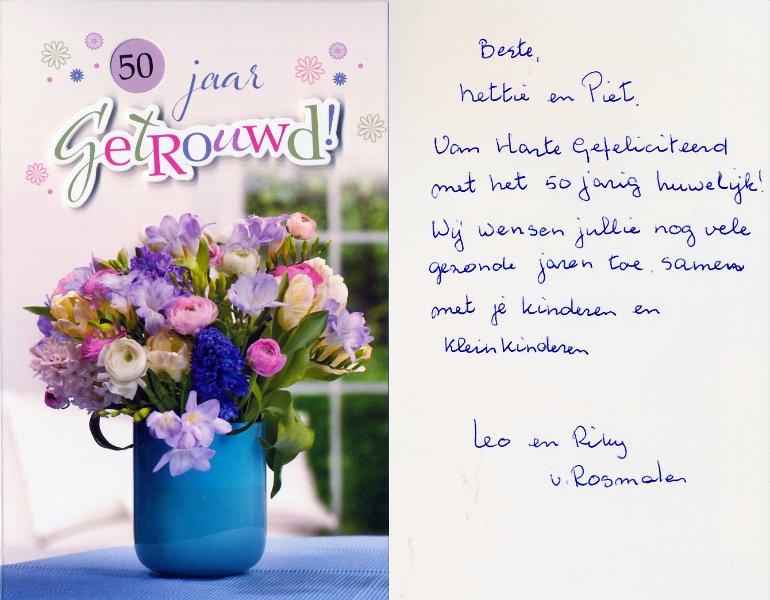 50 jaar
Getrouwd!
Beste,
Nettie en Piet.
Van Harte Gefeliciteerd
met het 50 jarig huwelijk!
Wij wensen jullie nog vele
gezonde jaren toe samen
met je kinderen en
kleinkinderen
Leo en Riky
v. Rosmalen